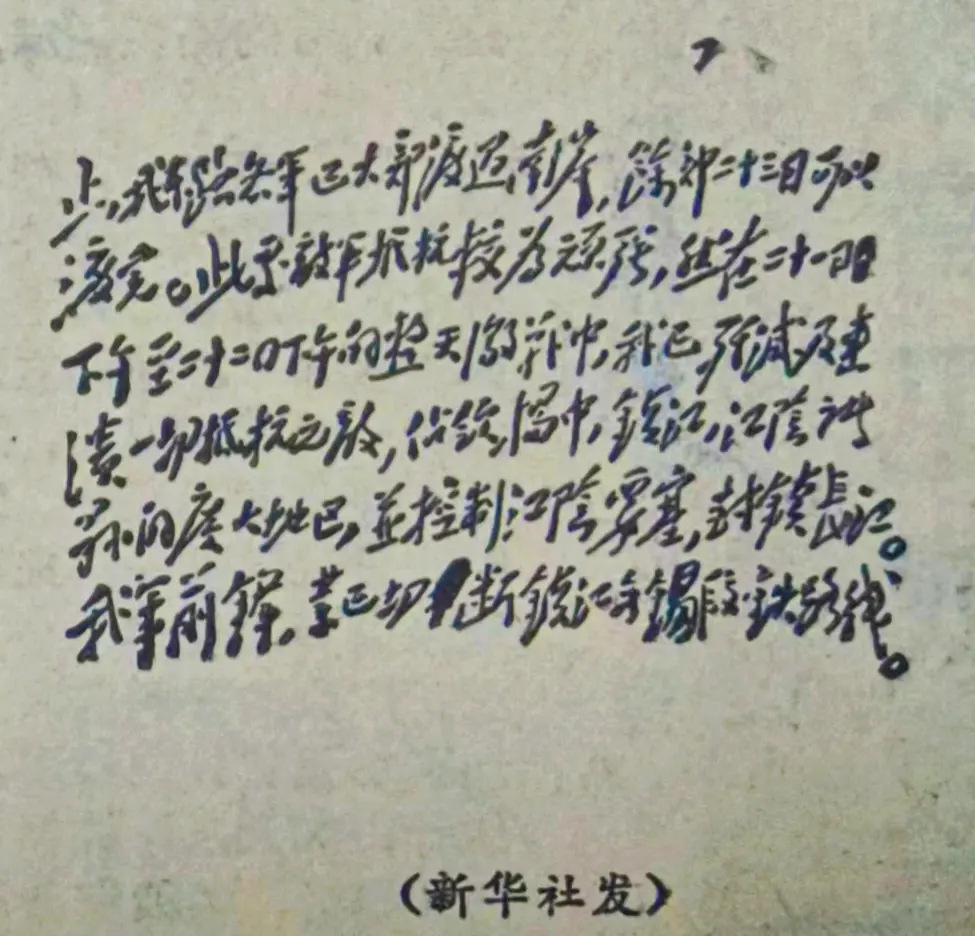 7
上,我东路各军已大部渡过南岸,馀部二十三日可以
渡完。此处敌军抵抗较为顽强,然在二十一日
下午至二十二日下午的整天激战中,我已歼灭及击
溃一切抵抗之敌,占领扬中,镇江,江陰诸
县的广大地区,並控制江陰要塞,封锁長江。
我军前锋,业已切断镇江无锡段铁路线。
(新华社发)